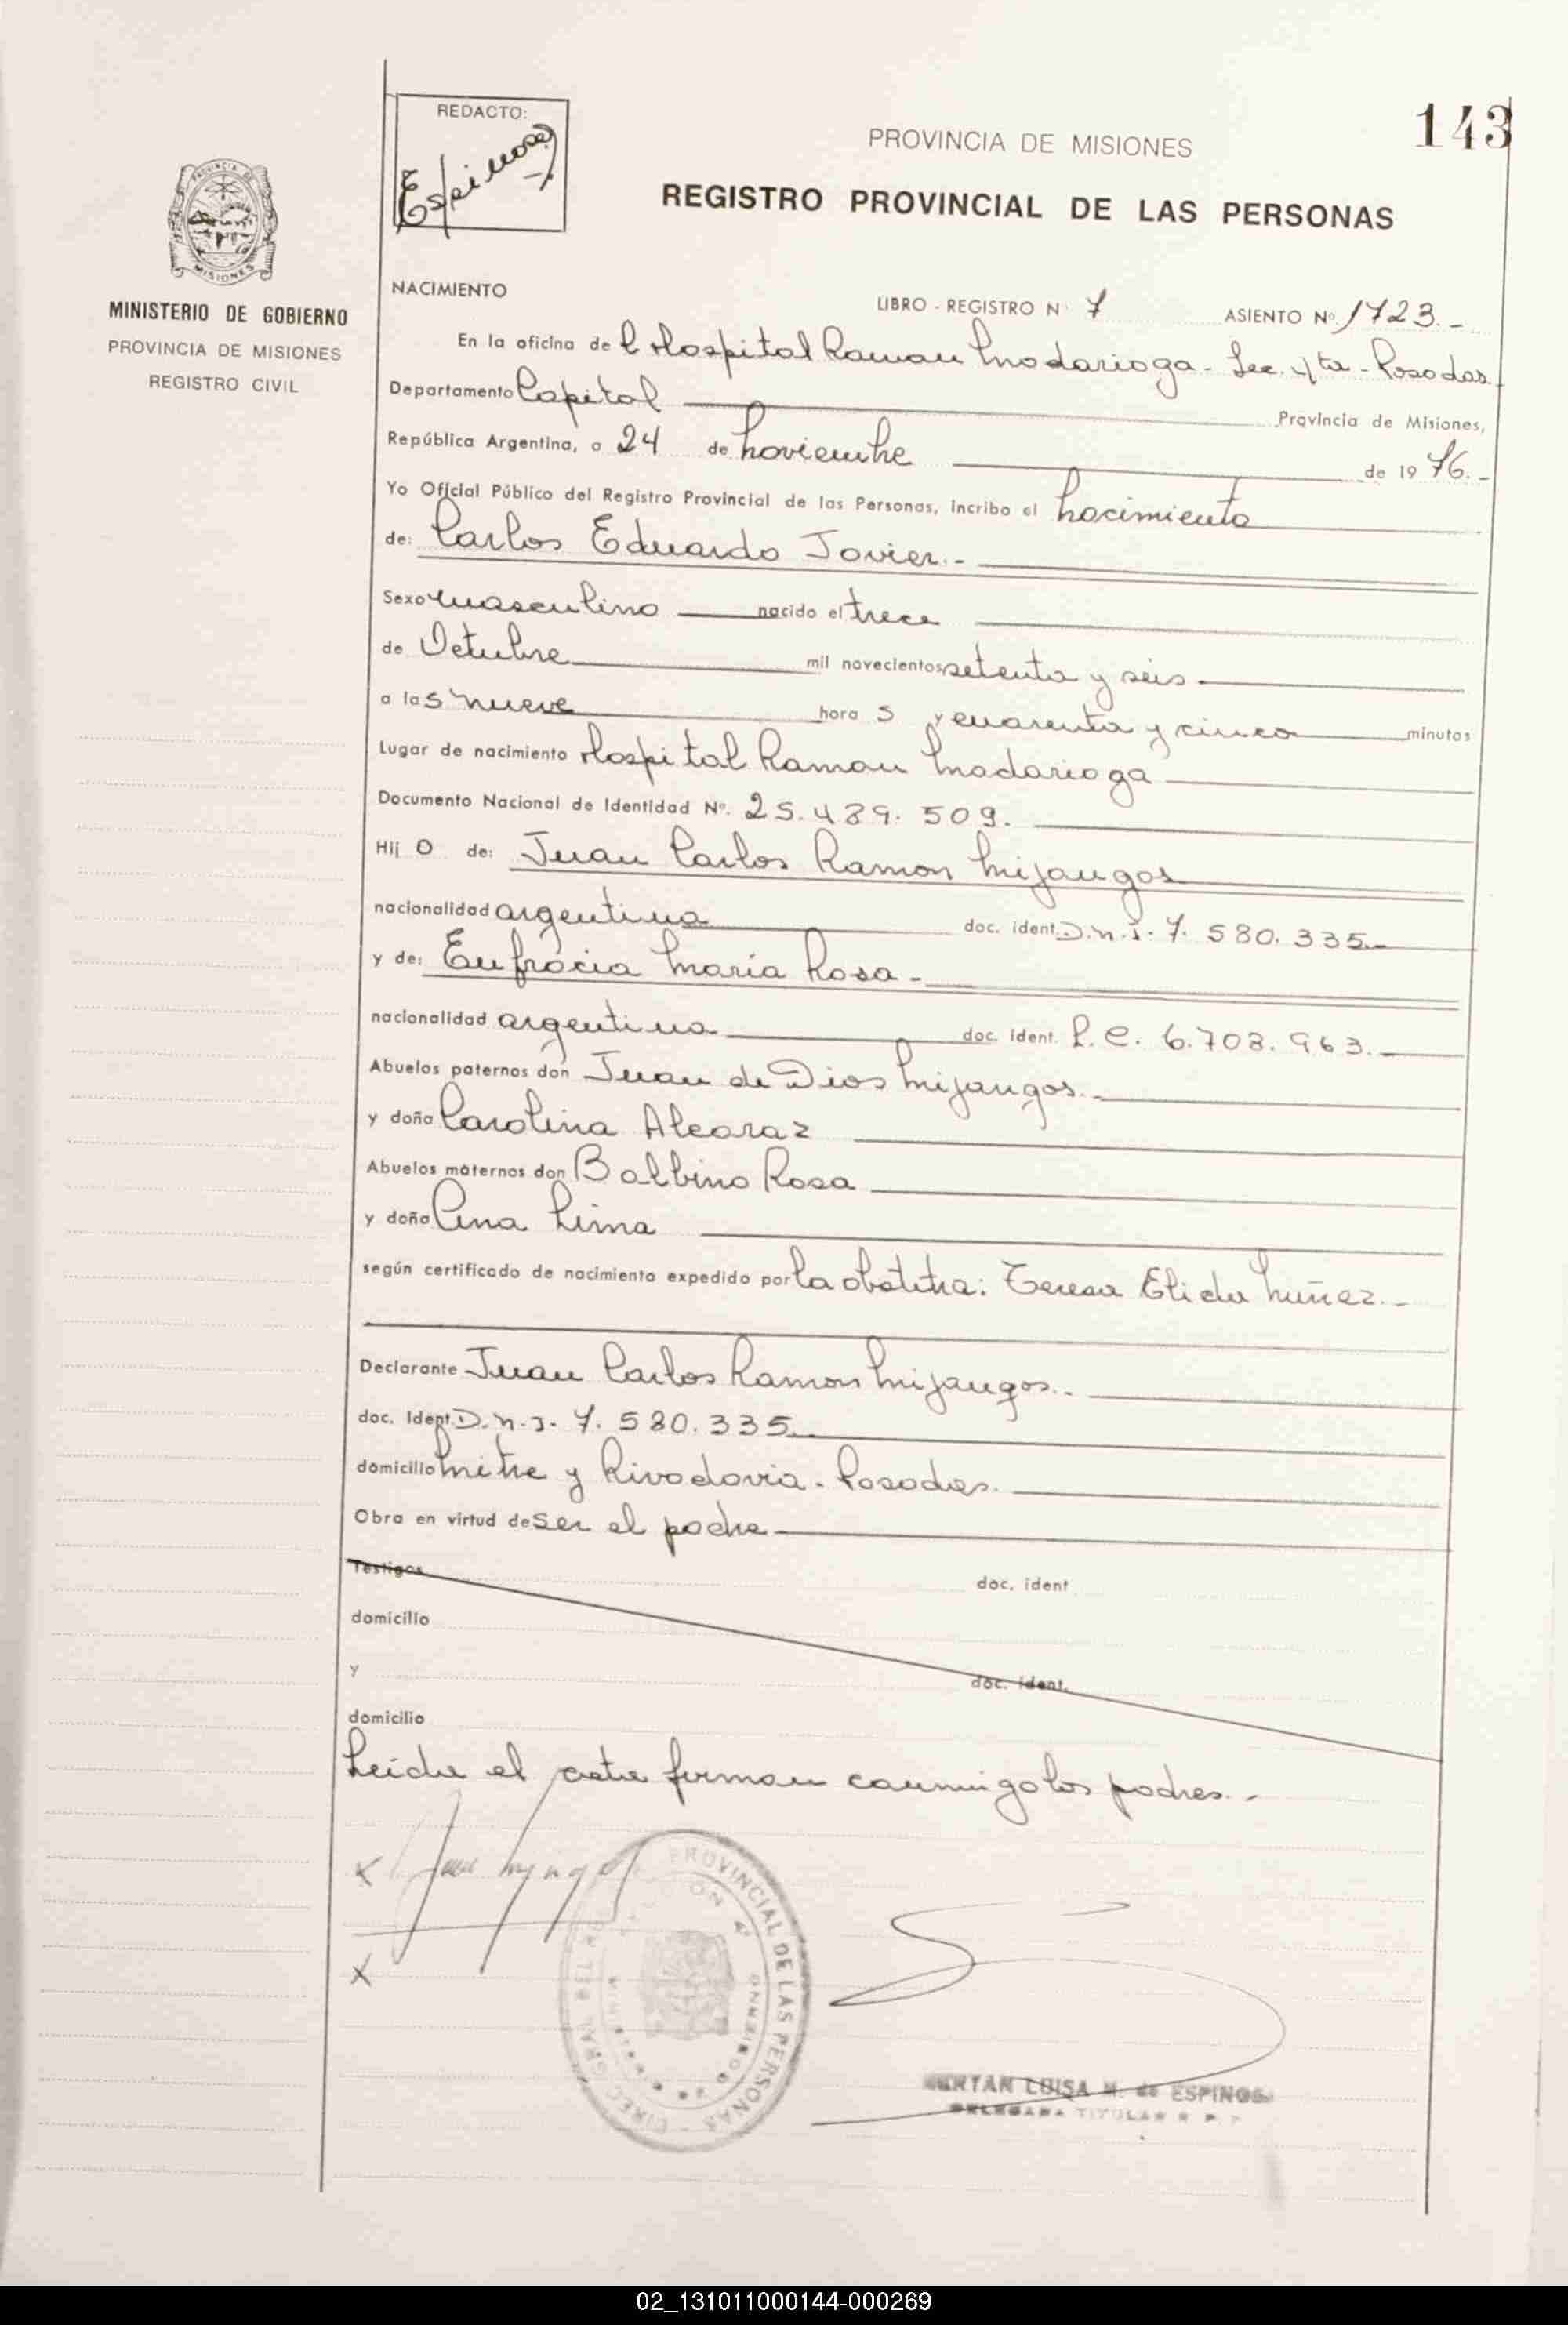 143
REDACTO:
Espinosa
PROVINCIA DE MISIONES
REGISTRO PROVINCIAL DE LAS PERSONAS
MISIONES
MINISTERIO DE GOBIERNO
PROVINCIA DE MISIONES
REGISTRO CIVIL
NACIMIENTO
LIBRO - REGISTRO N° 7 ASIENTO Nº. 1723.-
En la oficina del Hospital Ramon Madariaga - Sec. 4ta - Posadas.
Departamento Capital Provincia de Misiones,
República Argentina, a 24 de Noviembre de 1976.-
Yo Oficial Público del Registro Provincial de las Personas, incribo el Nacimiento
de: Carlos Eduardo Javier.-
Sexo masculino nacido el trece
de Octubre mil novecientos setenta y seis
a las nueve hora s y cuarenta y cinco minutos
Lugar de nacimiento Hospital Ramon Madariaga
Documento Nacional de Identidad Nº. 25.489.509.
Hij o de: Juan Carlos Ramon Mijangos
nacionalidad argentina doc. ident. D.N.I. 7.580.335.-
y de: Eufracia Maria Rosa.-
nacionalidad argentina doc. ident. L.C. 6.708.963.-
Abuelos paternos don Juan de Dios Mijangos.-
y doña Carolina Alcaraz
Abuelos maternos don Balbino Rosa
y doña Ana Lima
según certificado de nacimiento expedido por la obstetra: Teresa Elida Nuñez.-
Declarante Juan Carlos Ramon Mijangos.-
doc. Ident. D.N.I. 7.580.335.
domicilio Mitre y Rivadavia - Posadas.
Obra en virtud de ser el padre
Testigos doc. ident
domicilio
y doc. ident.
domicilio
Leida el acta firman conmigo los padres.-
x
x
PROVINCIAL DE LAS PERSONAS
LUISA M. de ESPINOSA
TITULAR
02_131011000144-000269